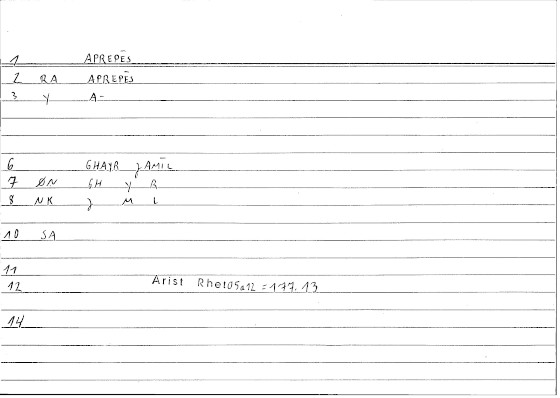 1 APREPĒS
2 RA APREPĒS
3 Y A-
6 GHAYR JAMĪL
7 ØN GH Y R
8 NK J M L
10 SA
11
12 Arist Rhet05a12 = 177.13
14